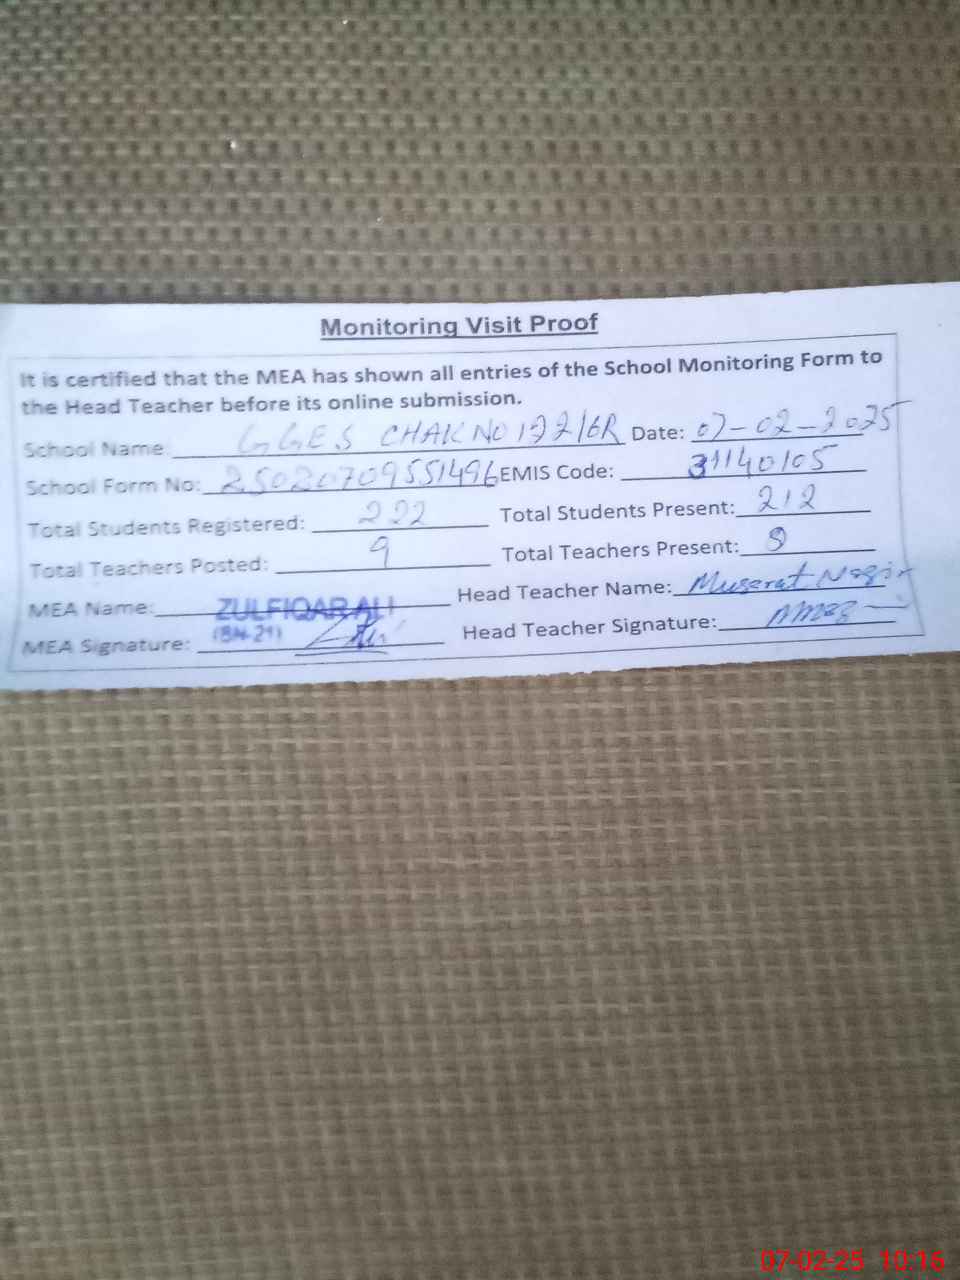 Monitoring Visit Proof
It is certified that the MEA has shown all entries of the School Monitoring Form to
the Head Teacher before its online submission.
School Name: GGES CHAK NO 122/6R Date: 07-02-2025
School Form No: 25020709551496 EMIS Code: 31140105
Total Students Registered: 222 Total Students Present: 212
Total Teachers Posted: 9 Total Teachers Present:
MEA Name: ZULFIQAR ALI Head Teacher Name: Musarat Nazir
MEA Signature: Head Teacher Signature:
07-02-25 10:16